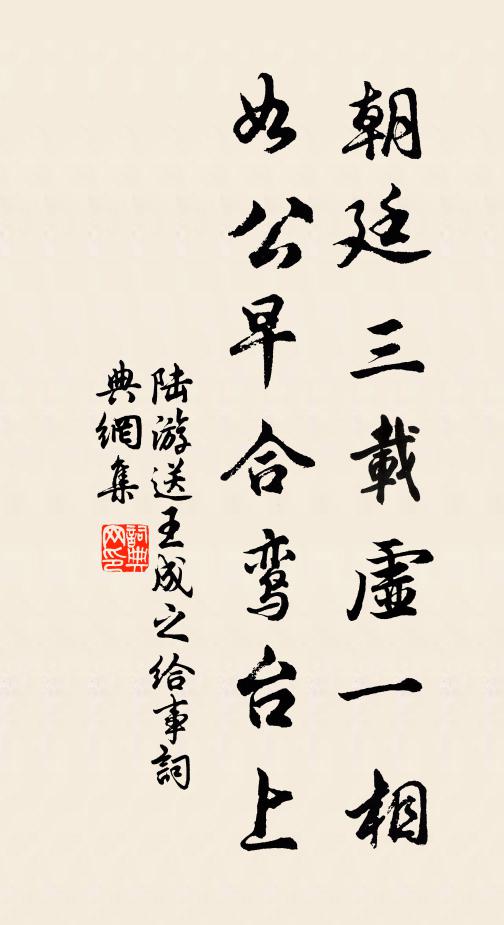 朝廷三載虛一相
如公早合鸾台上
陆游送王成之给事詞
典網集
詞典网印